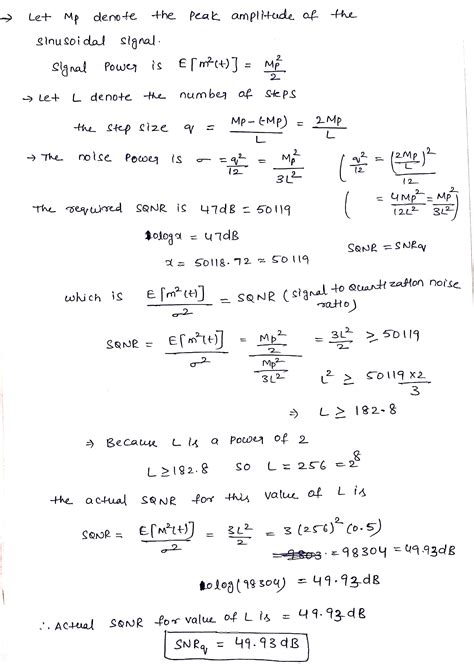 → Let Mp denote the peak amplitude of the
sinusoidal signal.
Signal power is E[m²(t)] = Mp²/2
→ Let L denote the number of steps
the step size q = Mp-(-Mp)/L = 2Mp/L
→ The noise power is σ = q²/12 = Mp²/3L² ( q²/12 = (2Mp/L)²/12
( = 4Mp²/12L² = Mp²/3L² )
The required SQNR is 47dB = 50119
10logx = 47dB
x = 50118.72 = 50119 SQNR = SNRq
which is E[m²(t)]/σ² = SQNR (signal to quantization noise
ratio)
SQNR = E[m²(t)]/σ² = (Mp²/2)/(Mp²/3L²) = 3L²/2 ≥ 50119
L² ≥ 50119×2/3
⇒ L ≥ 182.8
⇒ Because L is a power of 2
L ≥ 182.8 so L = 256 = 2⁸
the actual SQNR for this value of L is
SQNR = E[m²(t)]/σ² = 3L²/2 = 3(256)²(0.5)
= 98304 = 49.93dB
10log(98304) = 49.93dB
∴ Actual SQNR for value of L is = 49.93dB
SNRq = 49.93dB